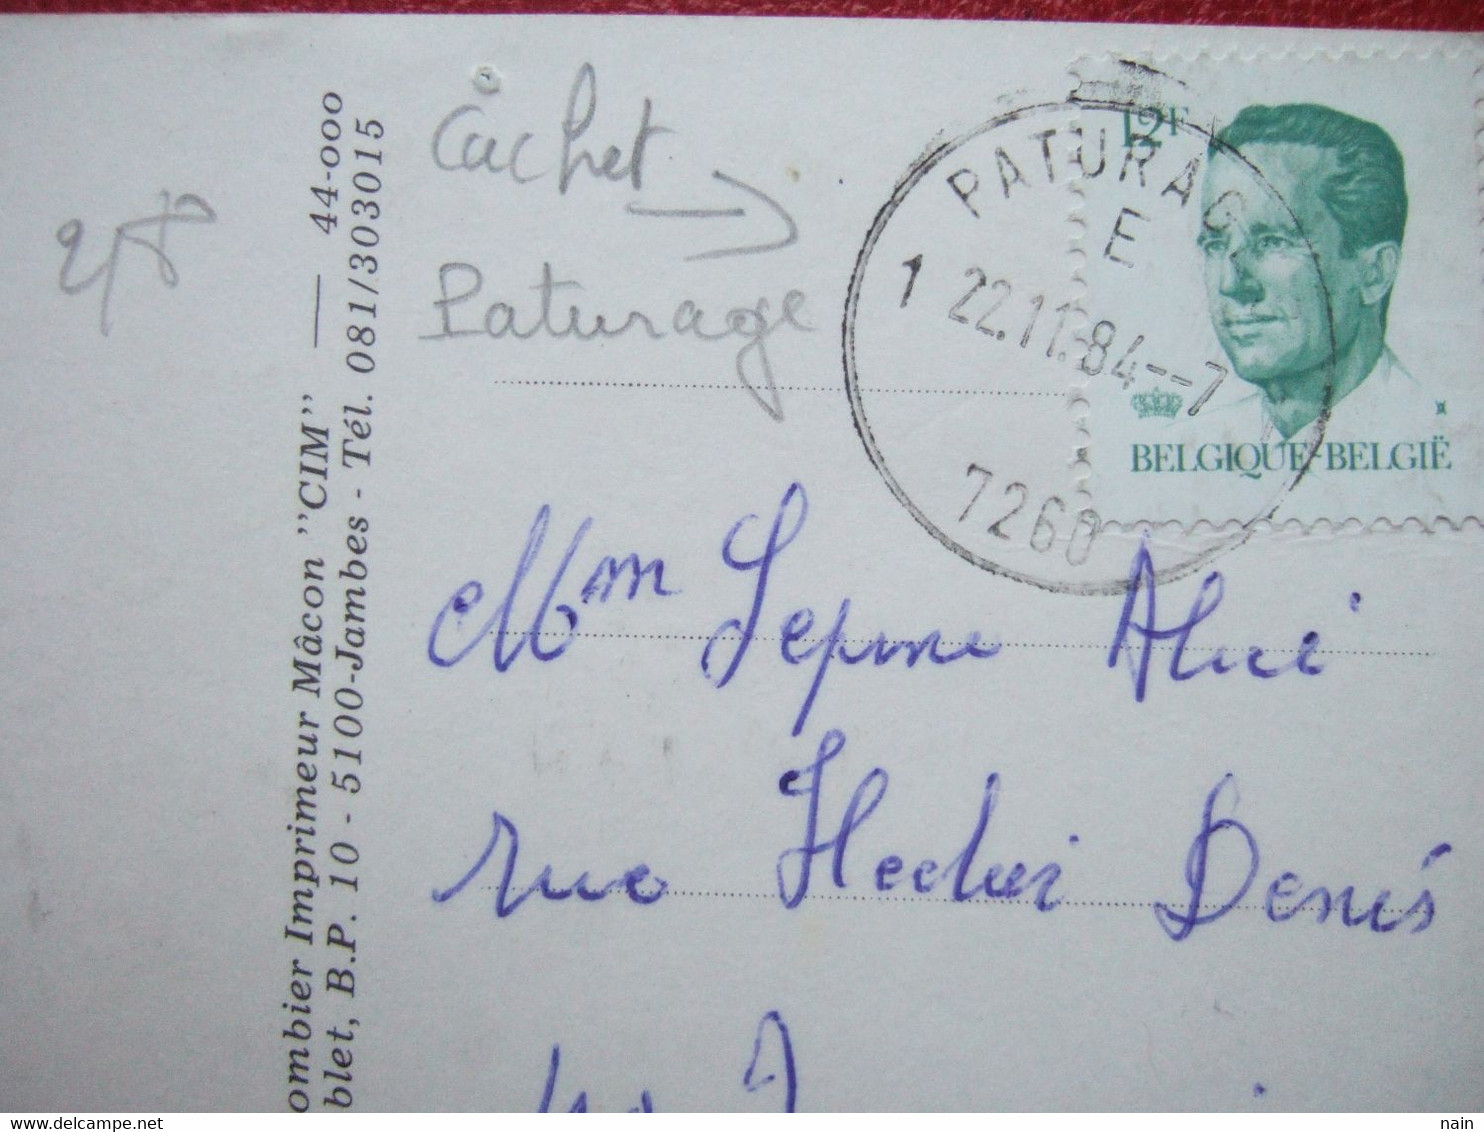 44-000
ombier Imprimeur Mâcon "CIM"
blet, B.P. 10 - 5100-Jambes - Tél. 081/303015
Cachet
Paturage
12F
PATURAGE
E
1 22.11.84--7
7260
BELGIQUE-BELGIË
Mm Lepine
rue Hector Denis
nain - delcampe.net